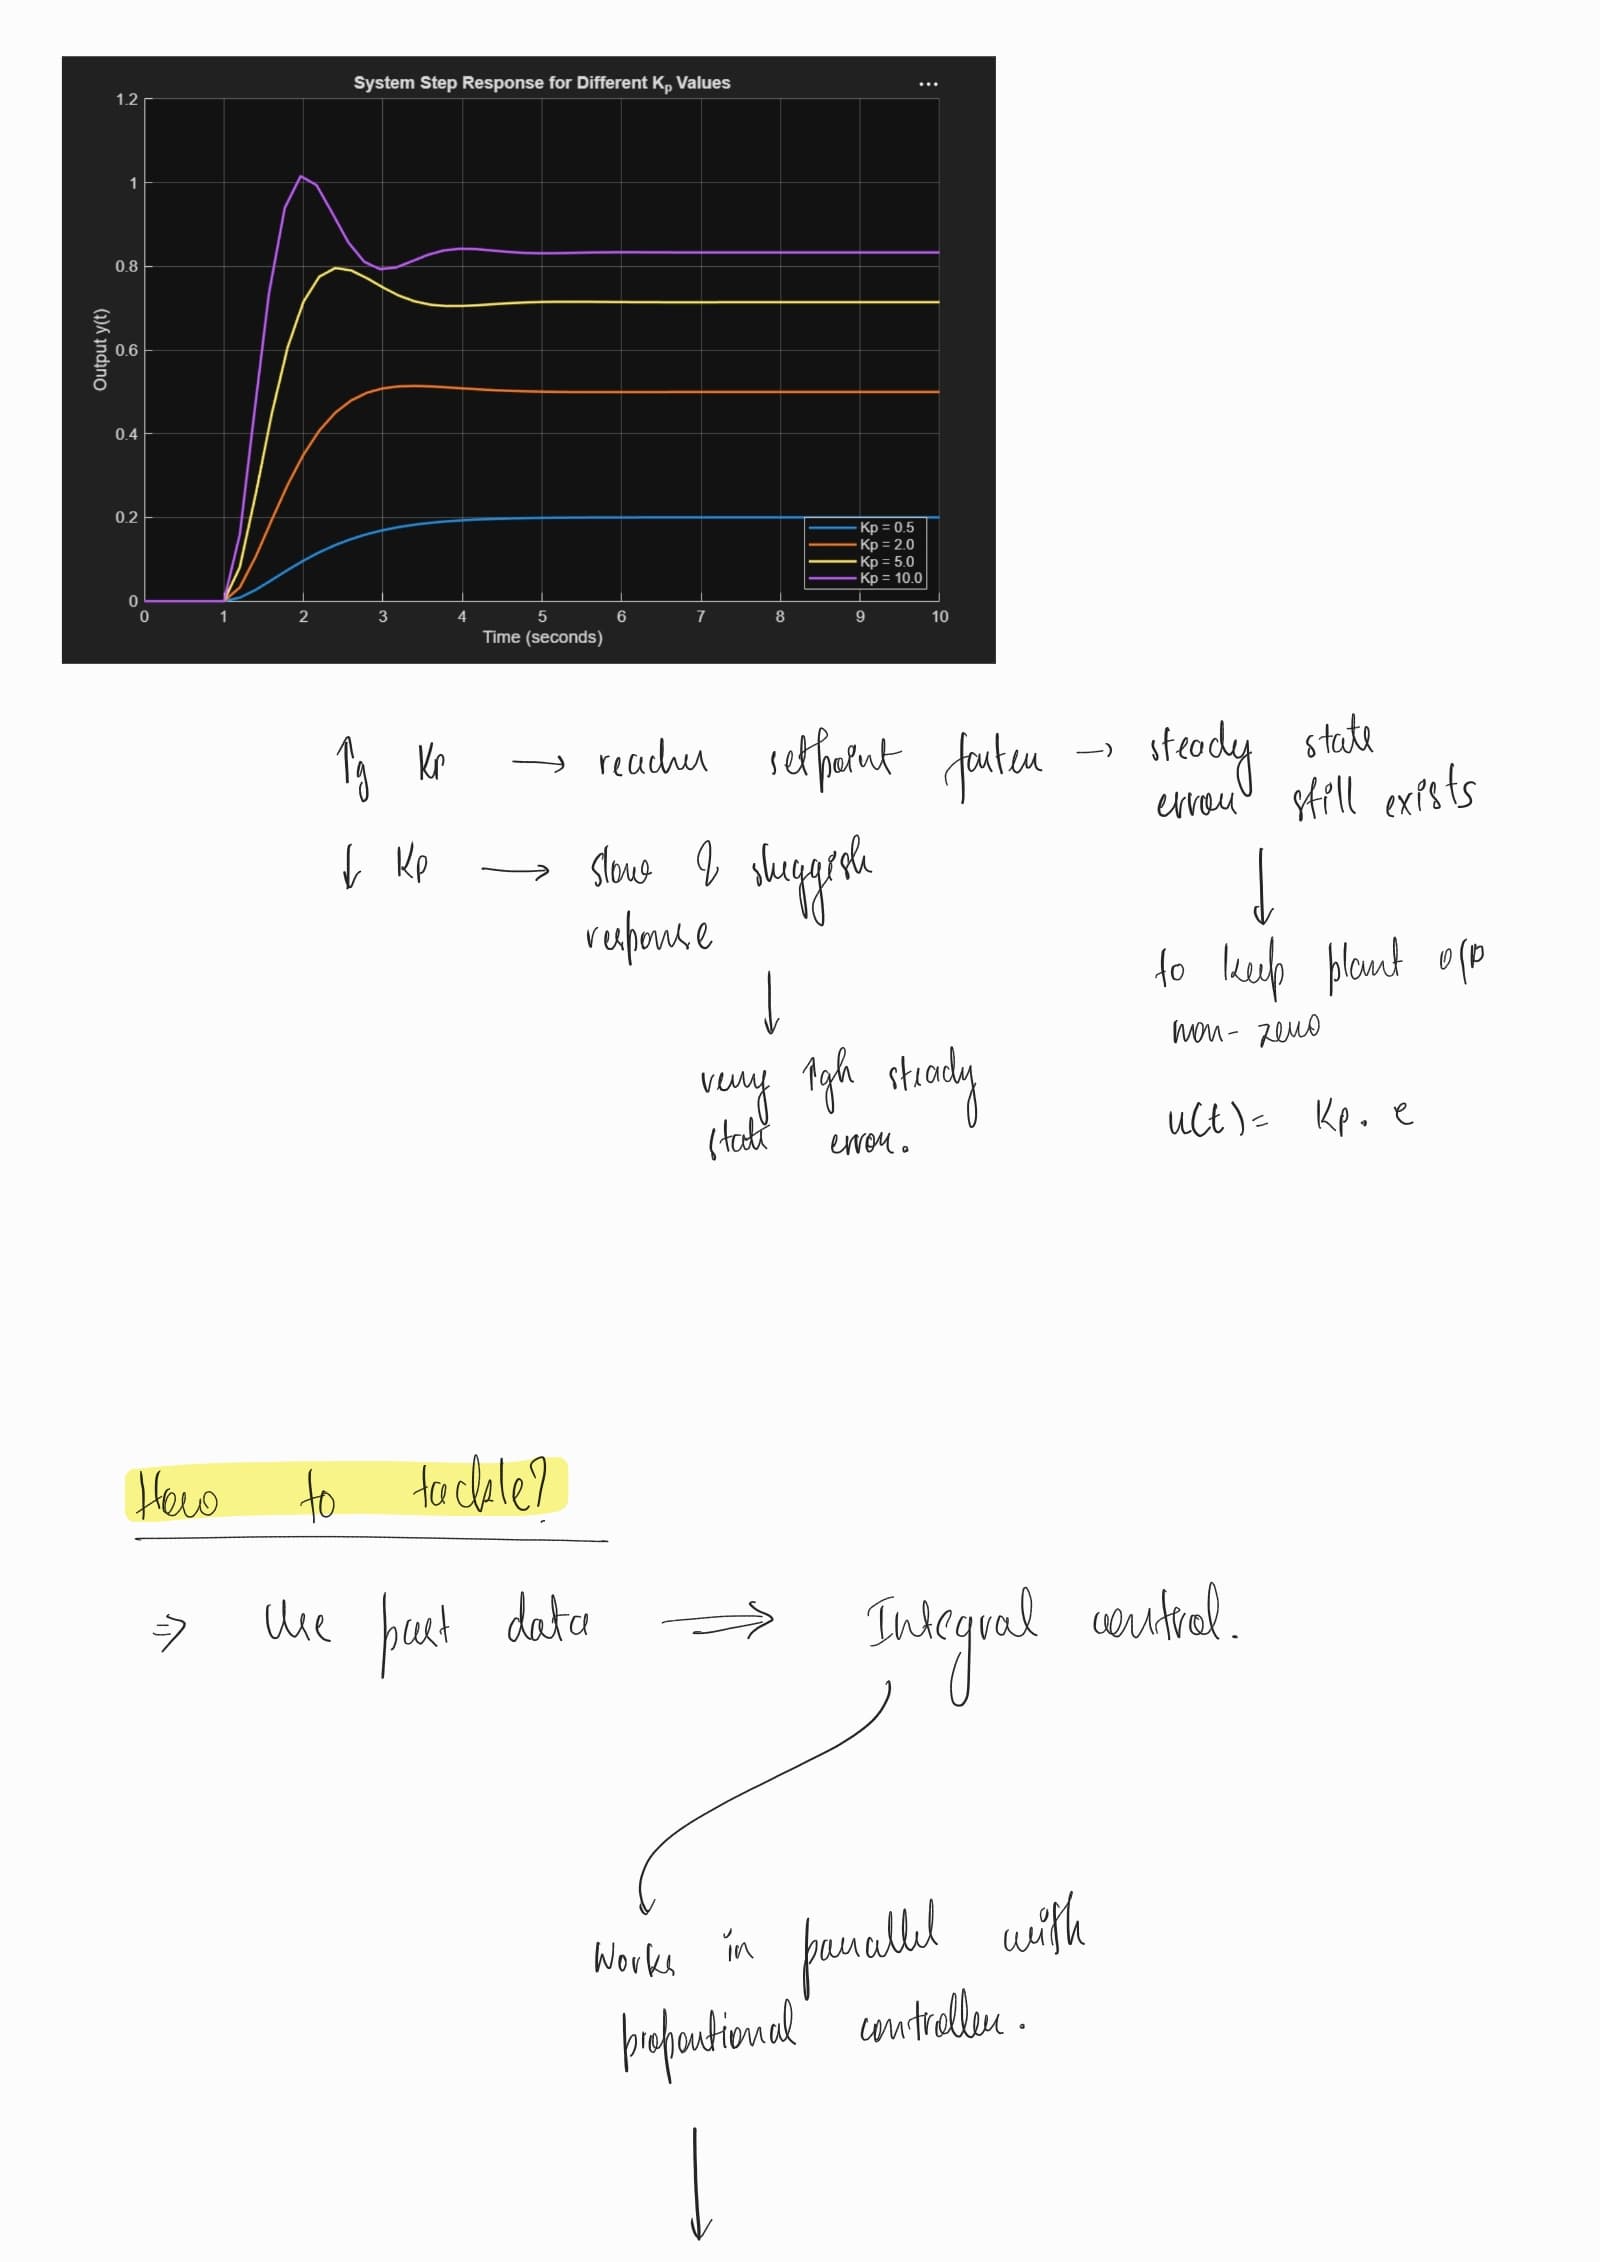 System Step Response for Different Kp Values
...
1.2
1
0.8
0.6
0.4
0.2
0
Output y(t)
Kp = 0.5
Kp = 2.0
Kp = 5.0
Kp = 10.0
0 1 2 3 4 5 6 7 8 9 10
Time (seconds)
↑g Kp → reaches setpoint faster → steady state
error still exists
↓ Kp → slow & sluggish
response
↓
to keep plant o/p
non-zero
↓
very ↑gh steady
state error.
u(t) = Kp. e
How to tackle?
⇒ Use past data ⇒ Integral control.
Works in parallel with
proportional controller.
↓